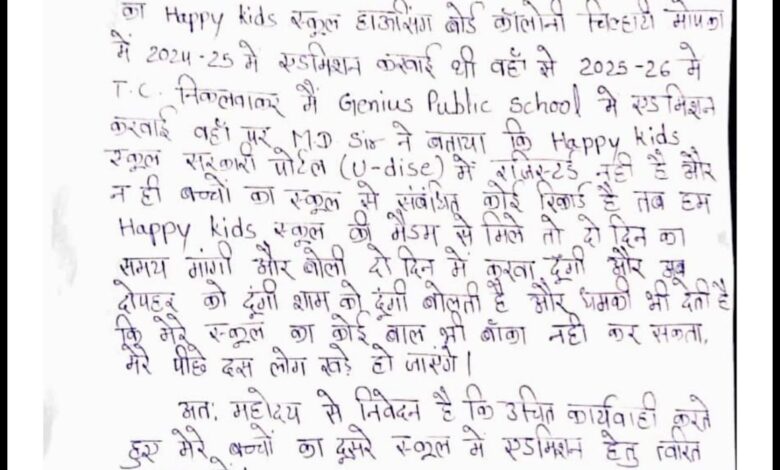 का Happy kids स्कूल हाऊसिंग बोर्ड कॉलोनी चिल्हाटी मोपका
में 2024-25 मे एडमिशन करवाई थी वहाँ से 2025-26 मे
T.C. निकलवाकर मैं Genius Public School मे एडमिशन
करवाई वहाँ पर M.D. Sir ने बताया कि Happy kids
स्कूल सरकारी पोर्टल (U-dise) में रजिस्टर्ड नही है और
न ही बच्चों का स्कूल से संबंधित कोई रिकार्ड है तब हम
Happy kids स्कूल की मैडम से मिले तो दो दिन का
समय मांगी और बोली दो दिन में करवा दूँगी और अब
दोपहर को दूंगी शाम को दूंगी बोलती है और धमकी भी देती है
कि मेरे स्कूल का कोई बाल भी बाँका नही कर सकता,
मेरे पीछे दस लोग खड़े हो जाएंगे।
अतः महोदय से निवेदन है कि उचित कार्यवाही करते
हुए मेरे बच्चों का दूसरे स्कूल में एडमिशन हेतु त्वरित